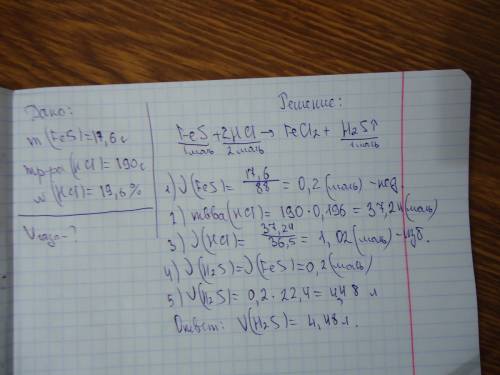 Дано:
m(FeS)=17,6г
mр-ра(HCl)=190г
w(HCl)=19,6%
Vгаза-?
Решение:
FeS+2HCl→FeCl2+H2S↑
1моль 2моль 1моль
1) ν(FeS)=17,6/88=0,2(моль)-нед.
2) mв-ва(HCl)=190·0,196=37,24(моль)
3) ν(HCl)=37,24/36,5=1,02(моль)-изб.
4) ν(H2S)=ν(FeS)=0,2(моль)
5) V(H2S)=0,2·22,4=4,48 л
Ответ: V(H2S)=4,48л.